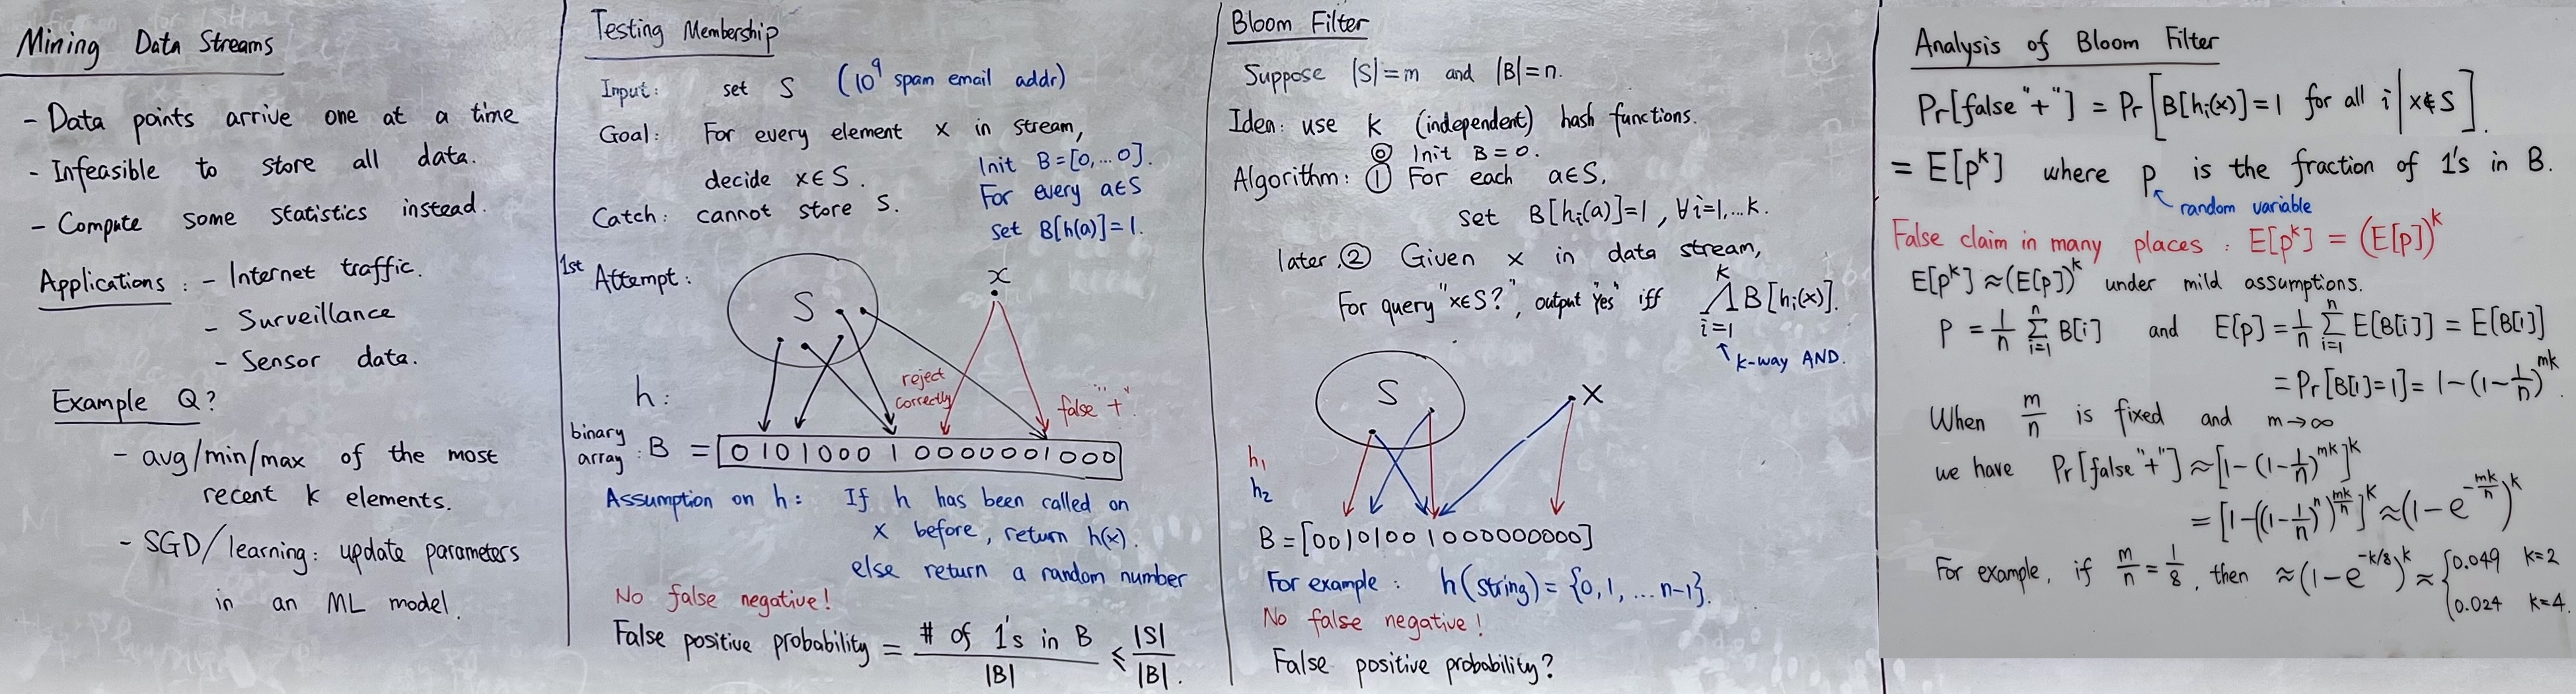 Mining Data Streams
- Data points arrive one at a time
- Infeasible to store all data.
- Compute some statistics instead.
Applications : - Internet traffic.
- Surveillance
- Sensor data.
Example Q?
- avg/min/max of the most
recent k elements.
- SGD/learning: update parameters
in an ML model.
Testing Membership
Input: set S (10⁹ spam email addr)
Goal: For every element x in stream,
decide x∈S.
Catch: cannot store S.
Init B=[0,...0].
For every a∈S
set B[h(a)]=1.
1st Attempt:
S
x
h:
reject correctly
false "+"
binary array: B = [0 1 0 1 0 0 0 1 0 0 0 0 0 0 1 0 0 0]
Assumption on h: If h has been called on
x before, return h(x).
else return a random number
No false negative!
False positive probability = # of 1's in B / |B| ≤ |S| / |B|.
Bloom Filter
Suppose |S|=m and |B|=n.
Idea: use k (independent) hash functions.
⓪ Init B=0.
Algorithm: ① For each a∈S,
set B[hᵢ(a)]=1, ∀i=1,...k.
later, ② Given x in data stream,
For query "x∈S?", output "Yes" iff ⋀ᵢ₌₁ᵏ B[hᵢ(x)].
↑ k-way AND.
S
x
h₁
h₂
B=[00101001000000000]
For example: h(string)={0,1,...n-1}.
No false negative!
False positive probability?
Analysis of Bloom Filter
Pr[false "+"] = Pr[B[hᵢ(x)]=1 for all i | x∉S].
= E[pᵏ] where p is the fraction of 1's in B.
random variable
False claim in many places : E[pᵏ] = (E[p])ᵏ
E[pᵏ] ≈ (E[p])ᵏ under mild assumptions.
p = 1/n Σᵢ₌₁ⁿ B[i] and E[p] = 1/n Σᵢ₌₁ⁿ E[B[i]] = E[B[1]]
= Pr[B[1]=1] = 1-(1-1/n)^mk.
When m/n is fixed and m→∞
we have Pr[false "+"] ≈ [1-(1-1/n)^mk]^k
= [1-((1-1/n)^n)^(mk/n)]^k ≈ (1-e^(-mk/n))^k
For example, if m/n = 1/8, then ≈ (1-e^(-k/8))^k ≈ { 0.049 k=2
0.024 k=4.